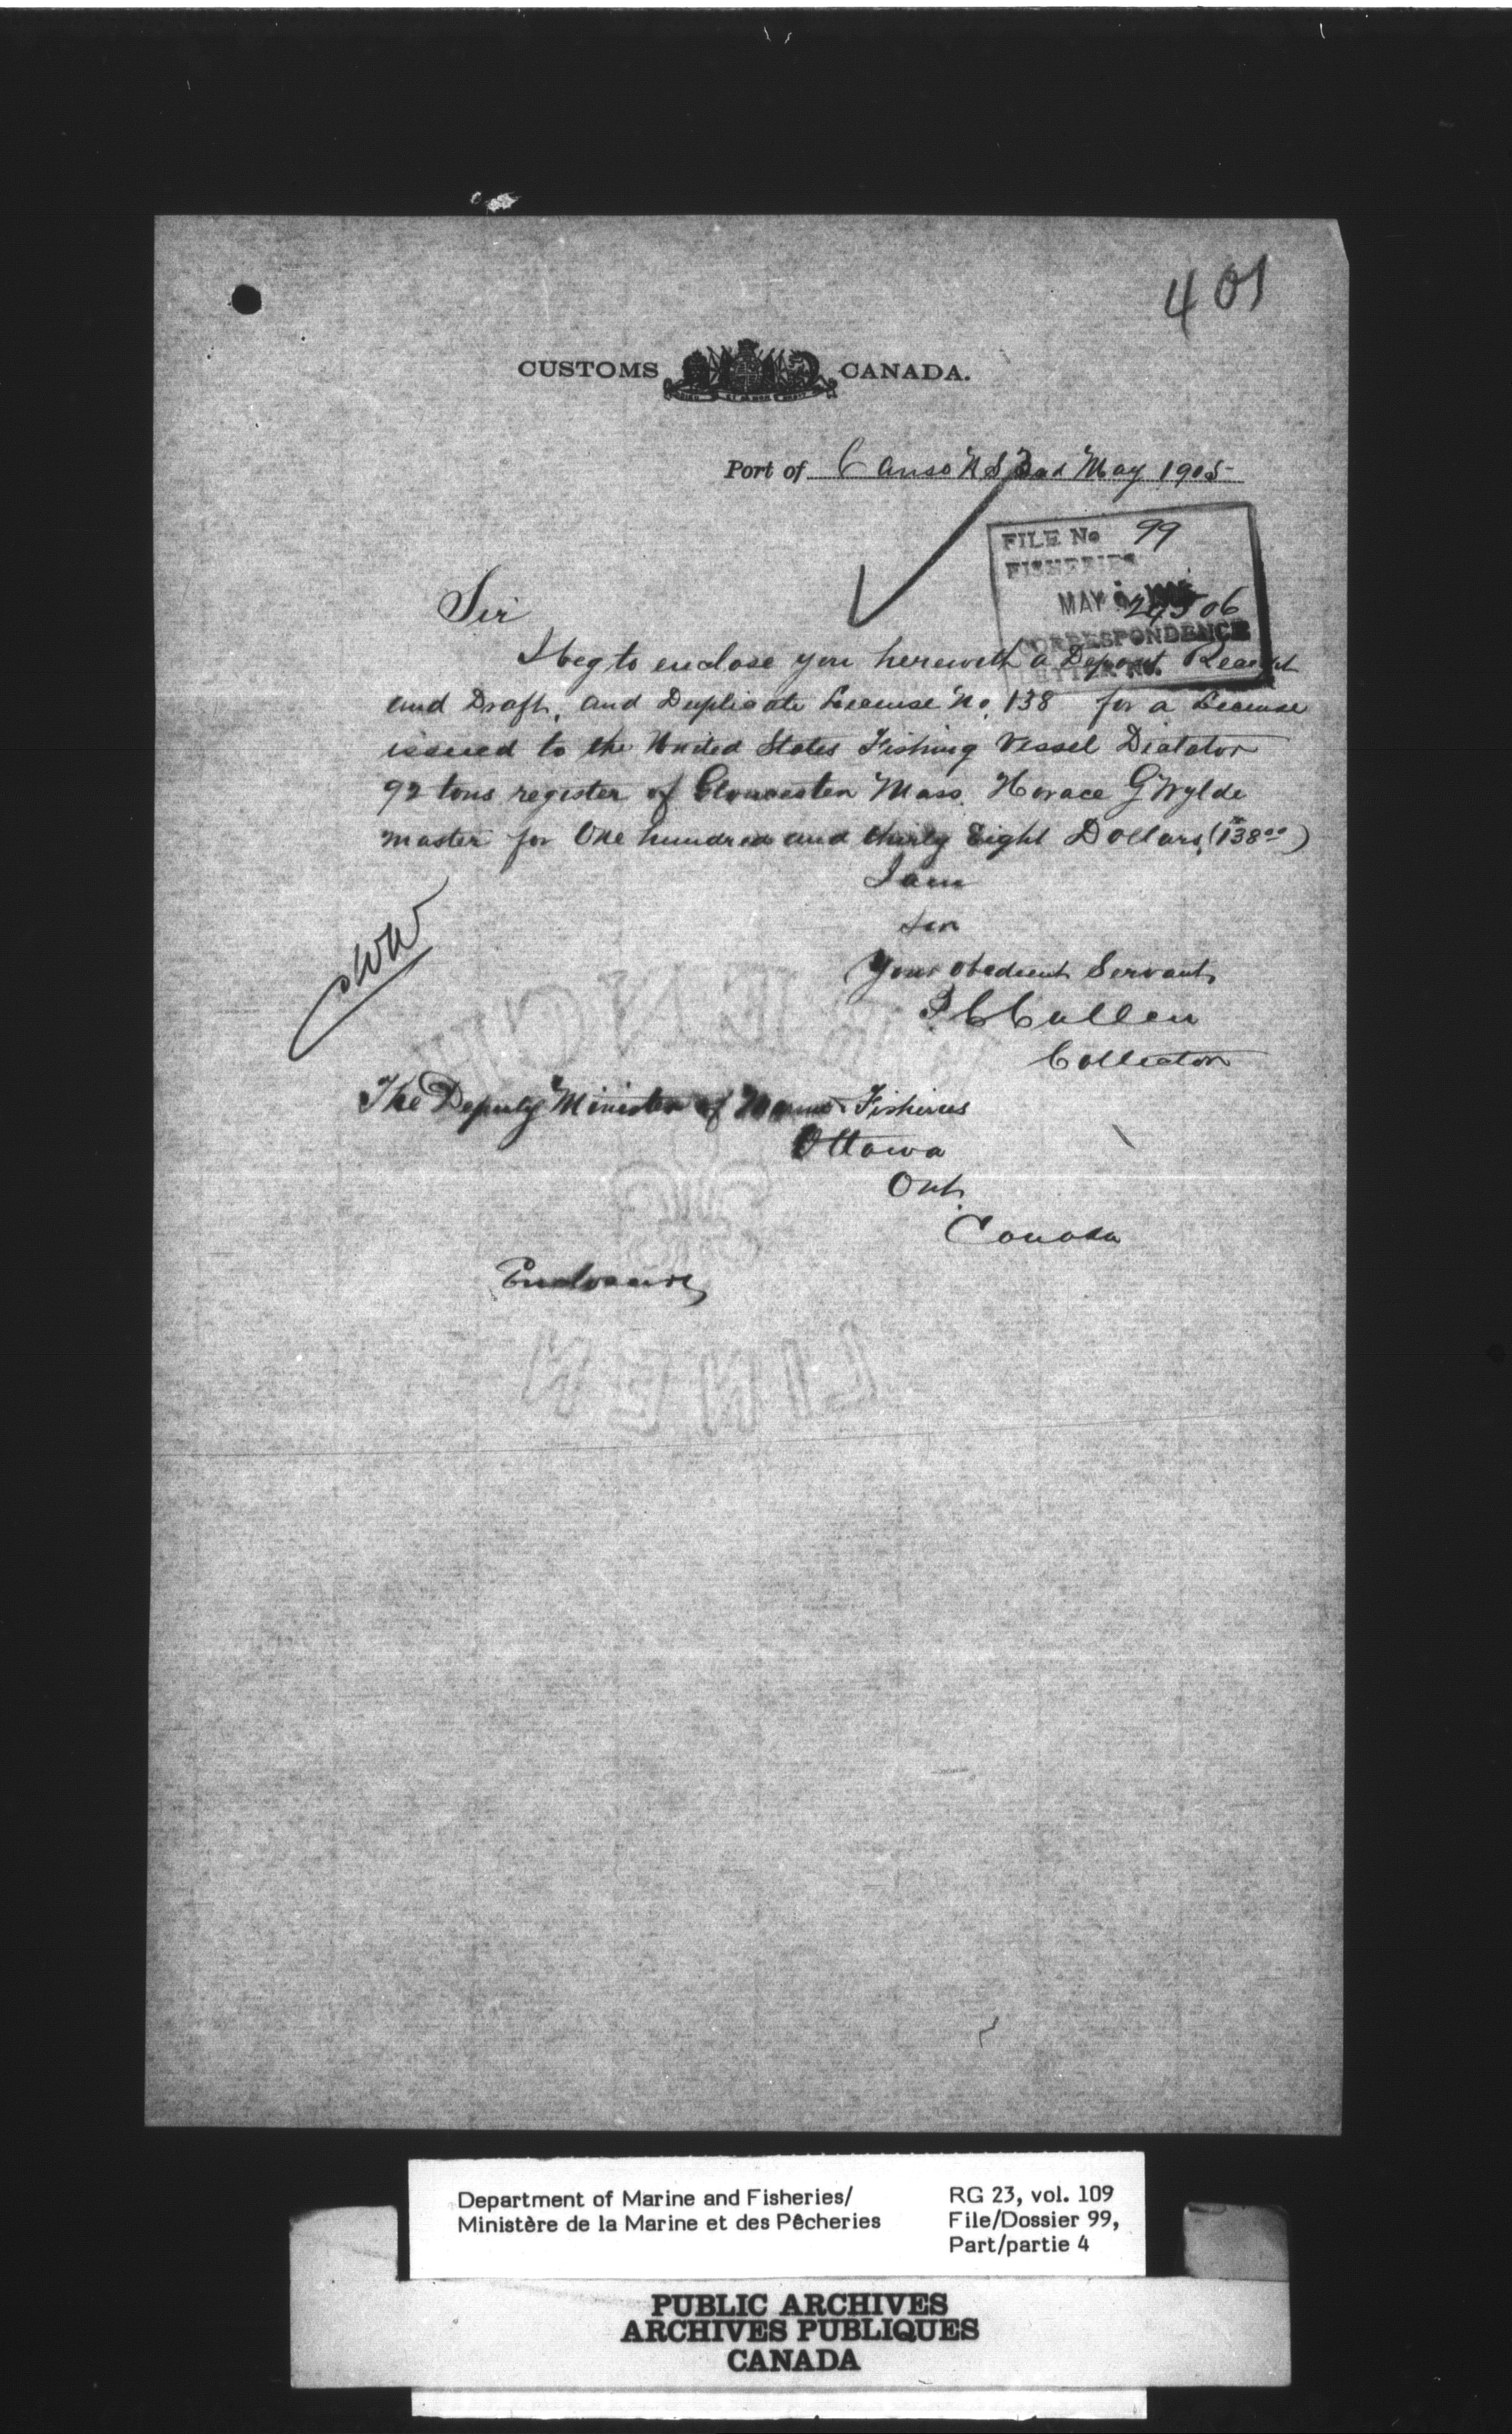 401
CUSTOMS CANADA.
Port of Canso N S May 1905
FILE No 99
FISHERIES
MAY
CORRESPONDENCE
LETTER No.
Sir
I beg to enclose you herewith a Deposit Receipt
and Draft, and Duplicate License No. 138 for a License
issued to the United States Fishing Vessel Dictator
92 tons register of Gloucester Mass. Horace G Wylde
master for One hundred and thirty Eight Dollars, (138.00)
I am
Sir
Your obedient Servant,
Cullen
Collector
The Deputy Minister of Marine & Fisheries
Ottawa
Ont.
Canada
Enclosure
FRENCH
LINEN
Department of Marine and Fisheries/
Ministère de la Marine et des Pêcheries
RG 23, vol. 109
File/Dossier 99,
Part/partie 4
PUBLIC ARCHIVES
ARCHIVES PUBLIQUES
CANADA